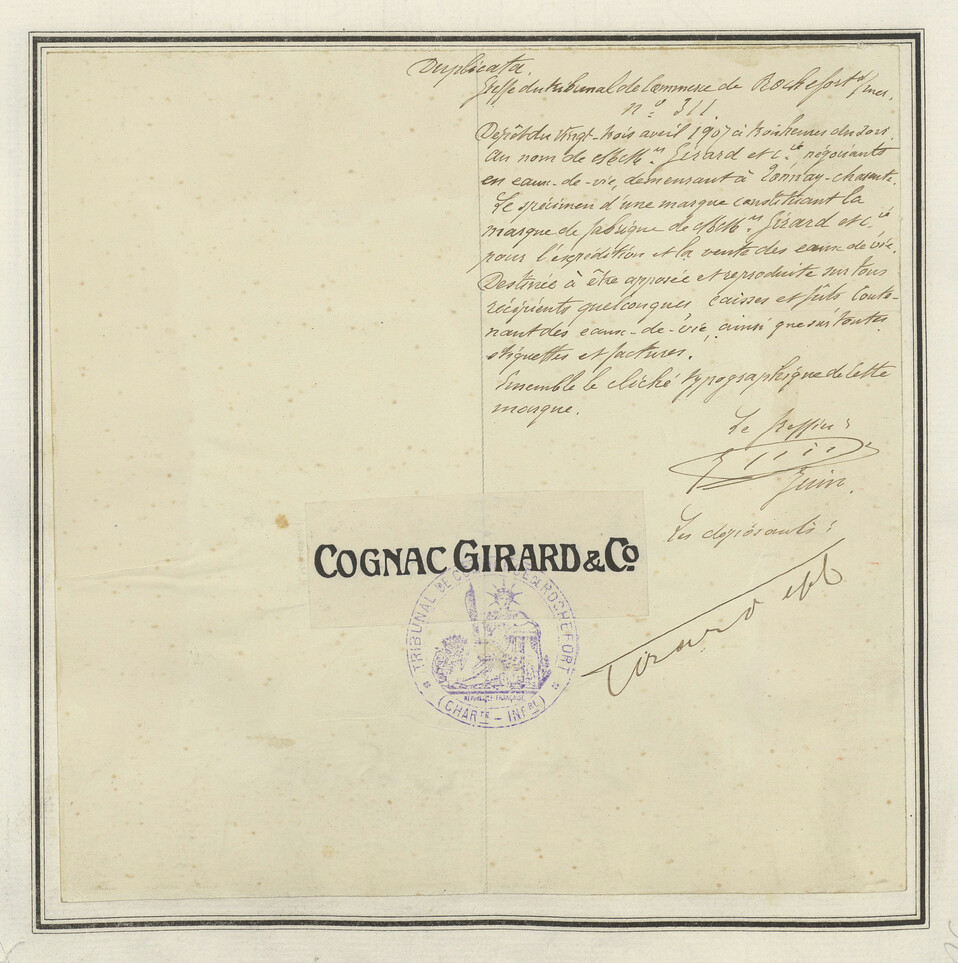 Duplicata.
Greffe du tribunal de Commerce de Rochefort s/mer.
nº 311.
Dépôt du vingt-trois avril 1907 à trois heures du soir.
Au nom de MM.rs Girard et C.ie négociants
en eaux-de-vie, demeurant à Tonnay-charente.
Le spécimen d'une marque constituant la
marque de fabrique de MM.rs Girard et C.ie
pour l'expédition et la vente des eaux-de-vie.
Destinée à être apposée et reproduite sur tous
récipients quelconques, caisses et fûts conte-
nant des eaux-de-vie, ainsi que sur toutes
étiquettes et factures.
Ensemble le cliché typographique de cette
marque.
Le Greffier:
Les déposants:
Girard et C
COGNAC GIRARD & Co
TRIBUNAL DE COMMERCE DE ROCHEFORT
RÉPUBLIQUE FRANÇAISE
(CHARTE - INFRE)